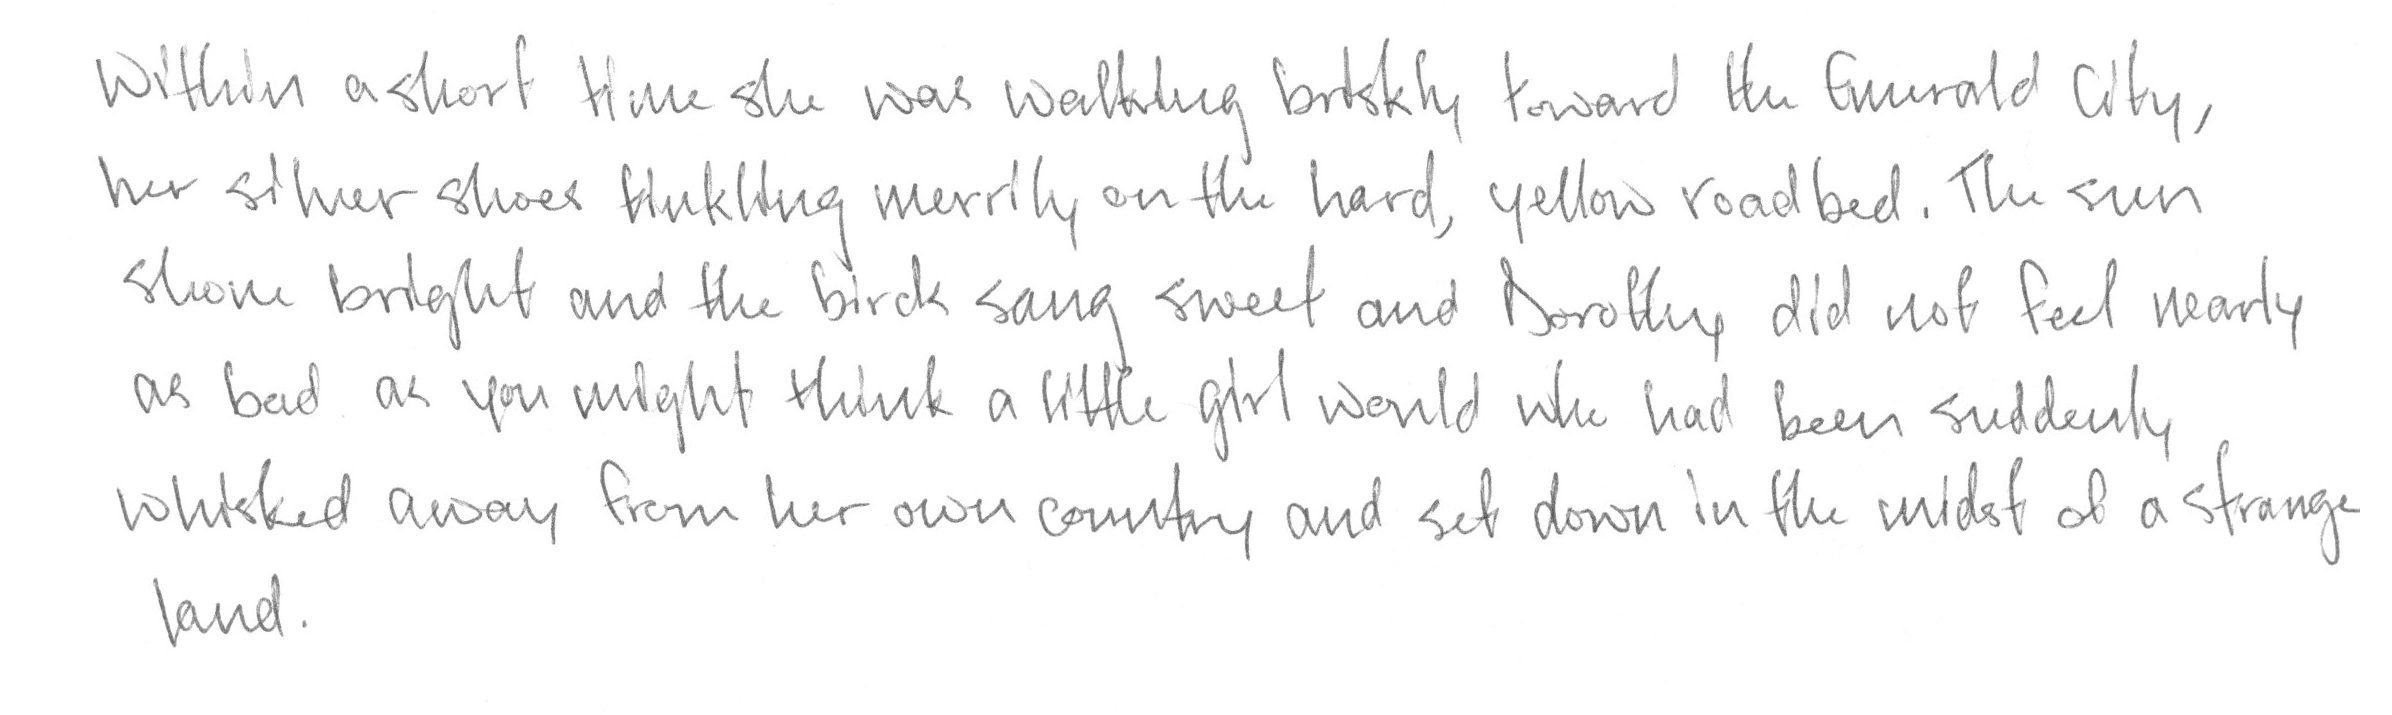 Within a short time she was walking briskly toward the Emerald City,
her silver shoes tinkling merrily on the hard, yellow roadbed. The sun
shone bright and the birds sang sweet and Dorothy did not feel nearly
as bad as you might think a little girl would who had been suddenly
whisked away from her own country and set down in the midst of a strange
land.